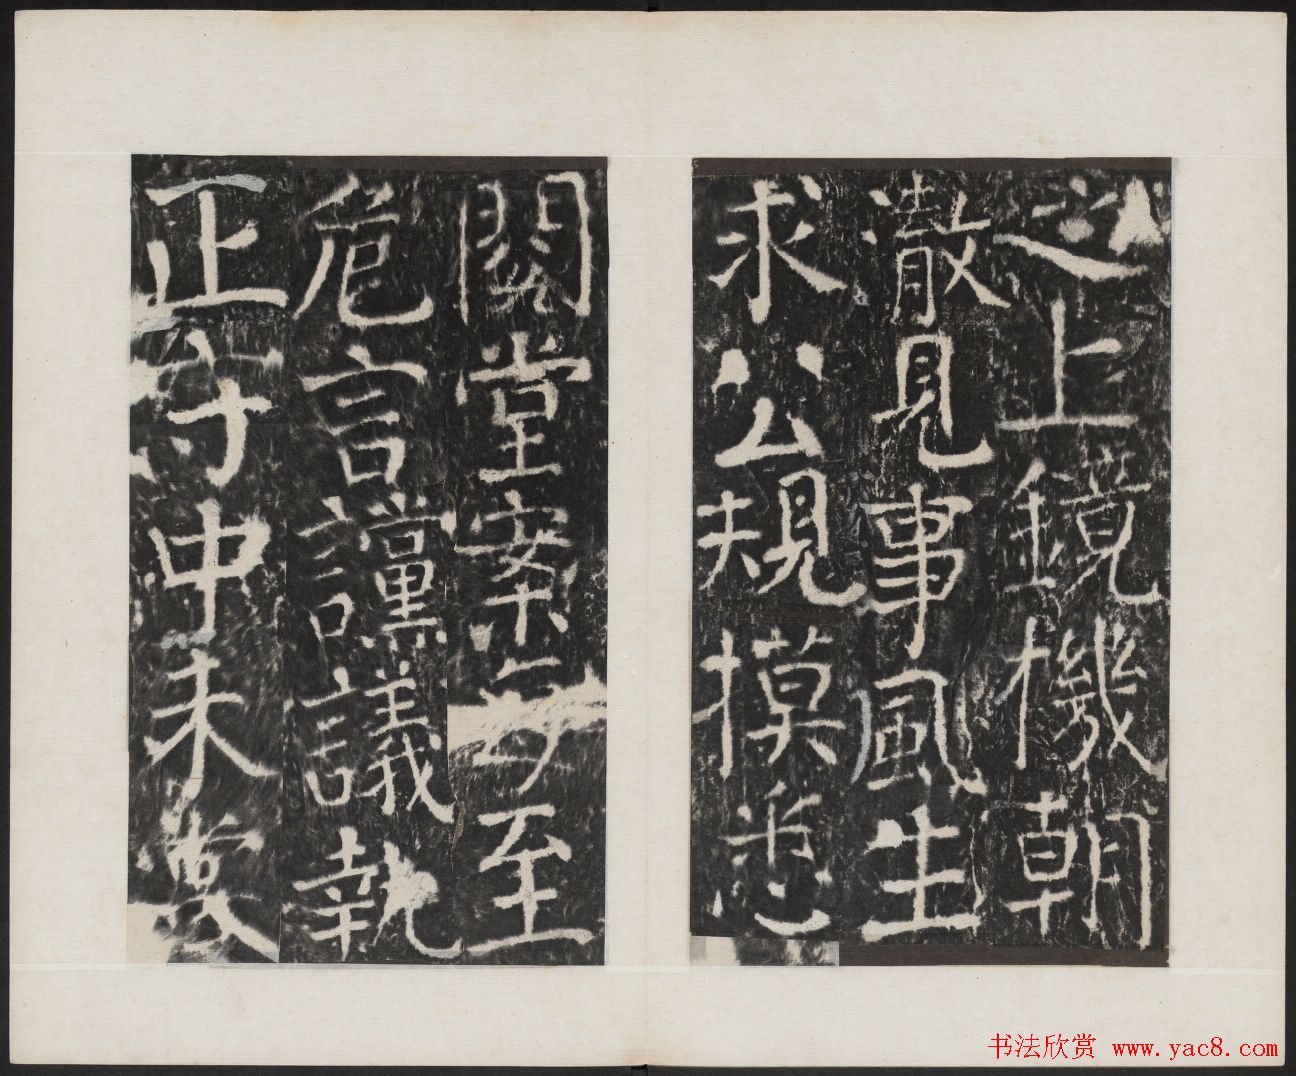 之上鏡機朝
澈見事風生
求公規模悉
閱堂案每至
危言讜議執
正守中未嘗
书法欣赏 www.yac8.com